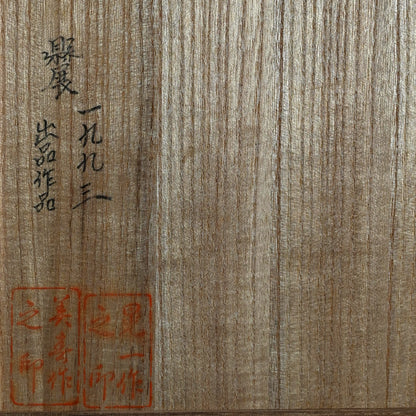 縣展
一九九三
出品作品
一作
之印
美寿作
之印